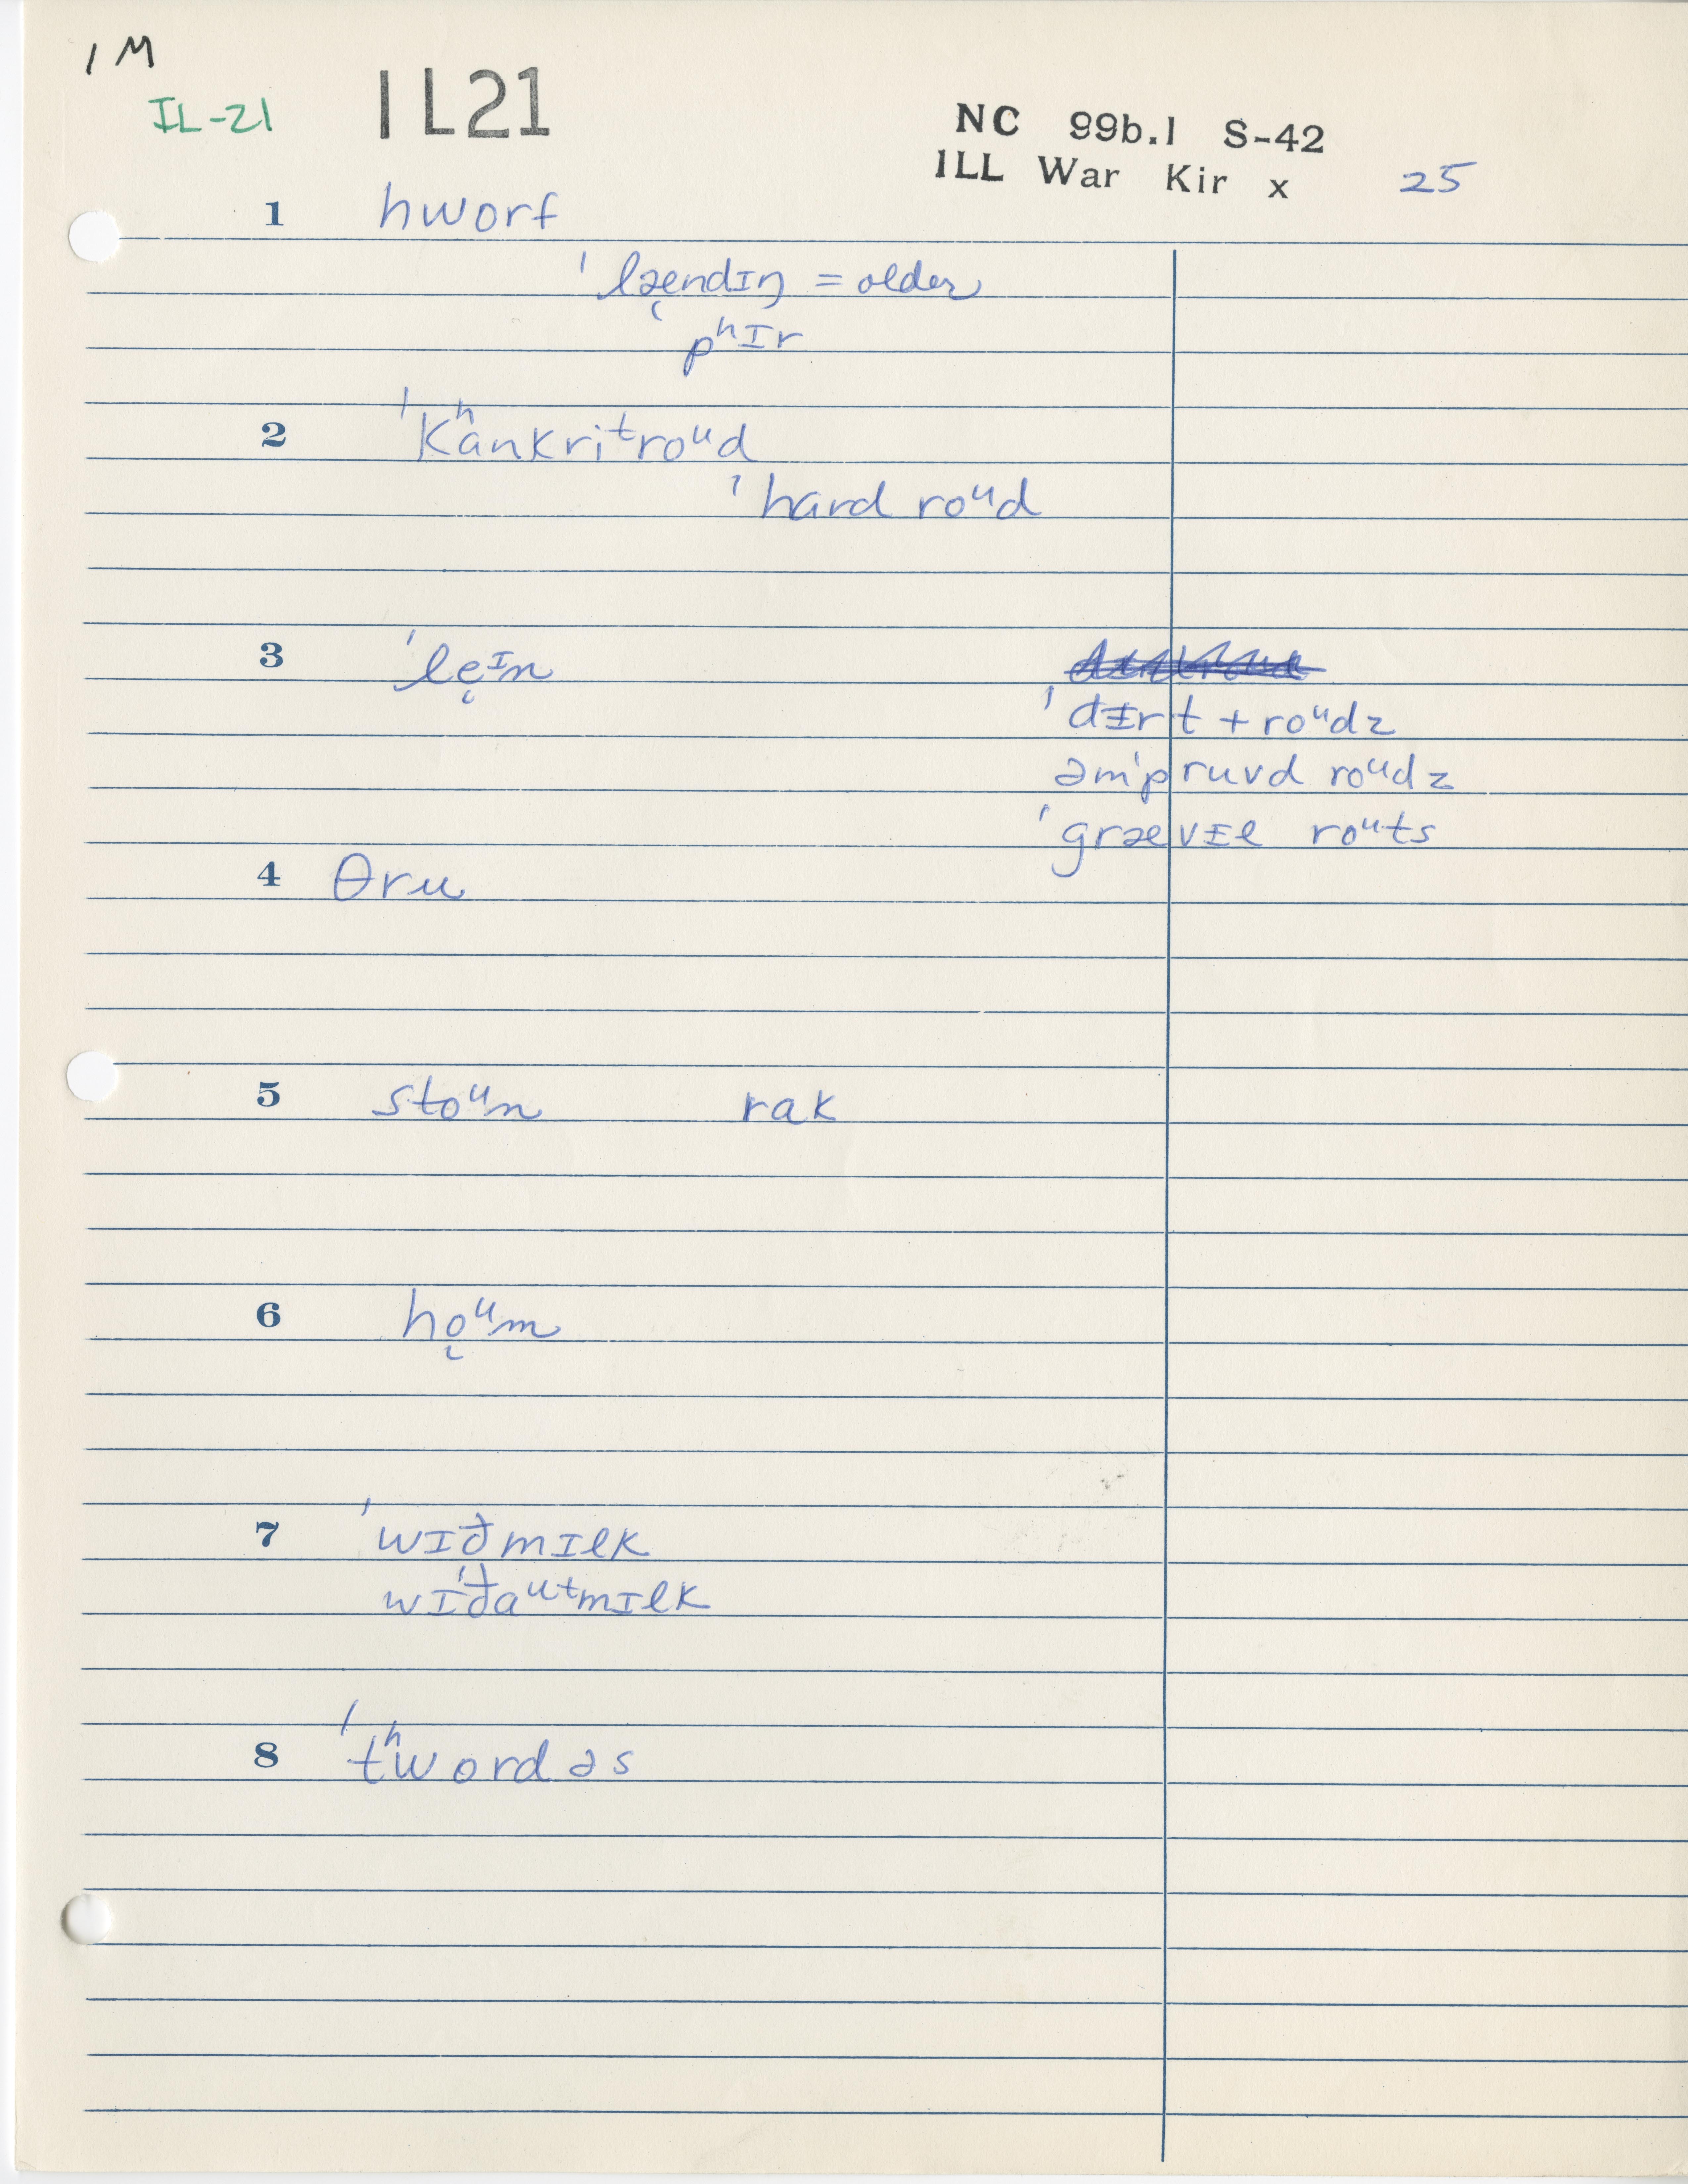 1 M
IL-21 IL21
NC 99b.1 S-42
ILL War Kir x 25
1 hworf
ˈlæ̜ndɪŋ = older
pʰɪr
2 ˈkʰankriᵗroᵘd
ˈhard roᵘd
3 ˈle̜ᴵn
ˈdɨrt + roᵘdz
əmˈpruvd roᵘdz
ˈgrævɨl roᵘts
4 θru
5 stoᵘn rak
6 ho̜ᵘm
7 ˈwɪðmɪlk
wɪˈðaᵘᵗmɪlk
8 ˈtʰwordəs